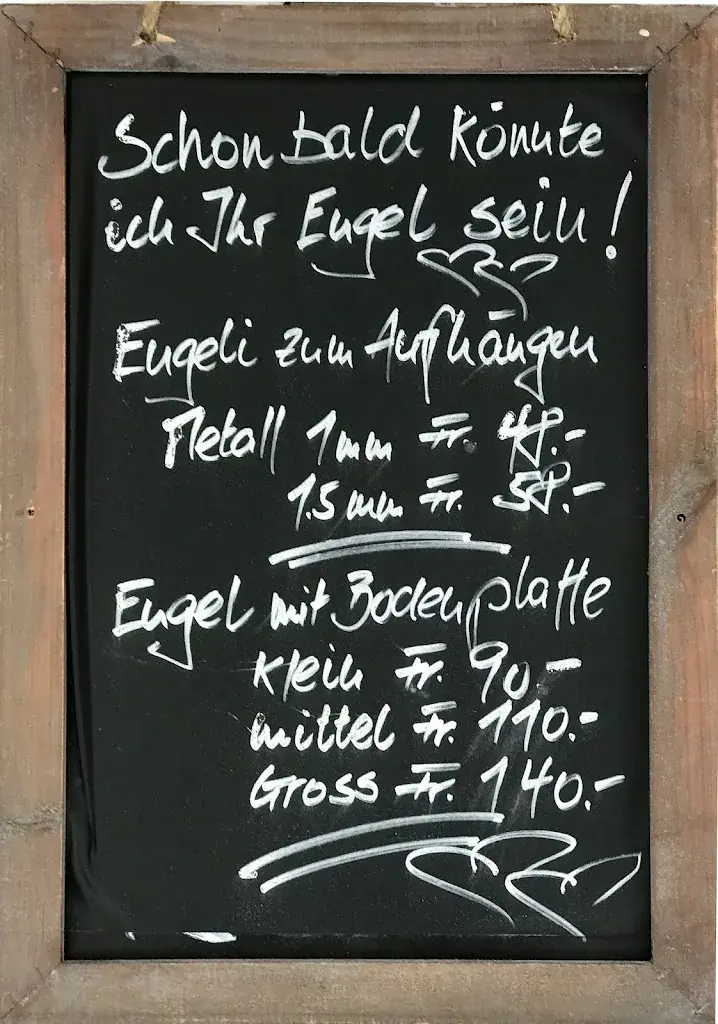 Schon bald könnte
ich Ihr Engel sein!
Engeli zum Aufhängen
Metall 1mm Fr. 48.-
1.5 mm Fr. 58.-
Engel mit Bodenplatte
klein Fr. 90.-
mittel Fr. 110.-
Gross Fr. 140.-